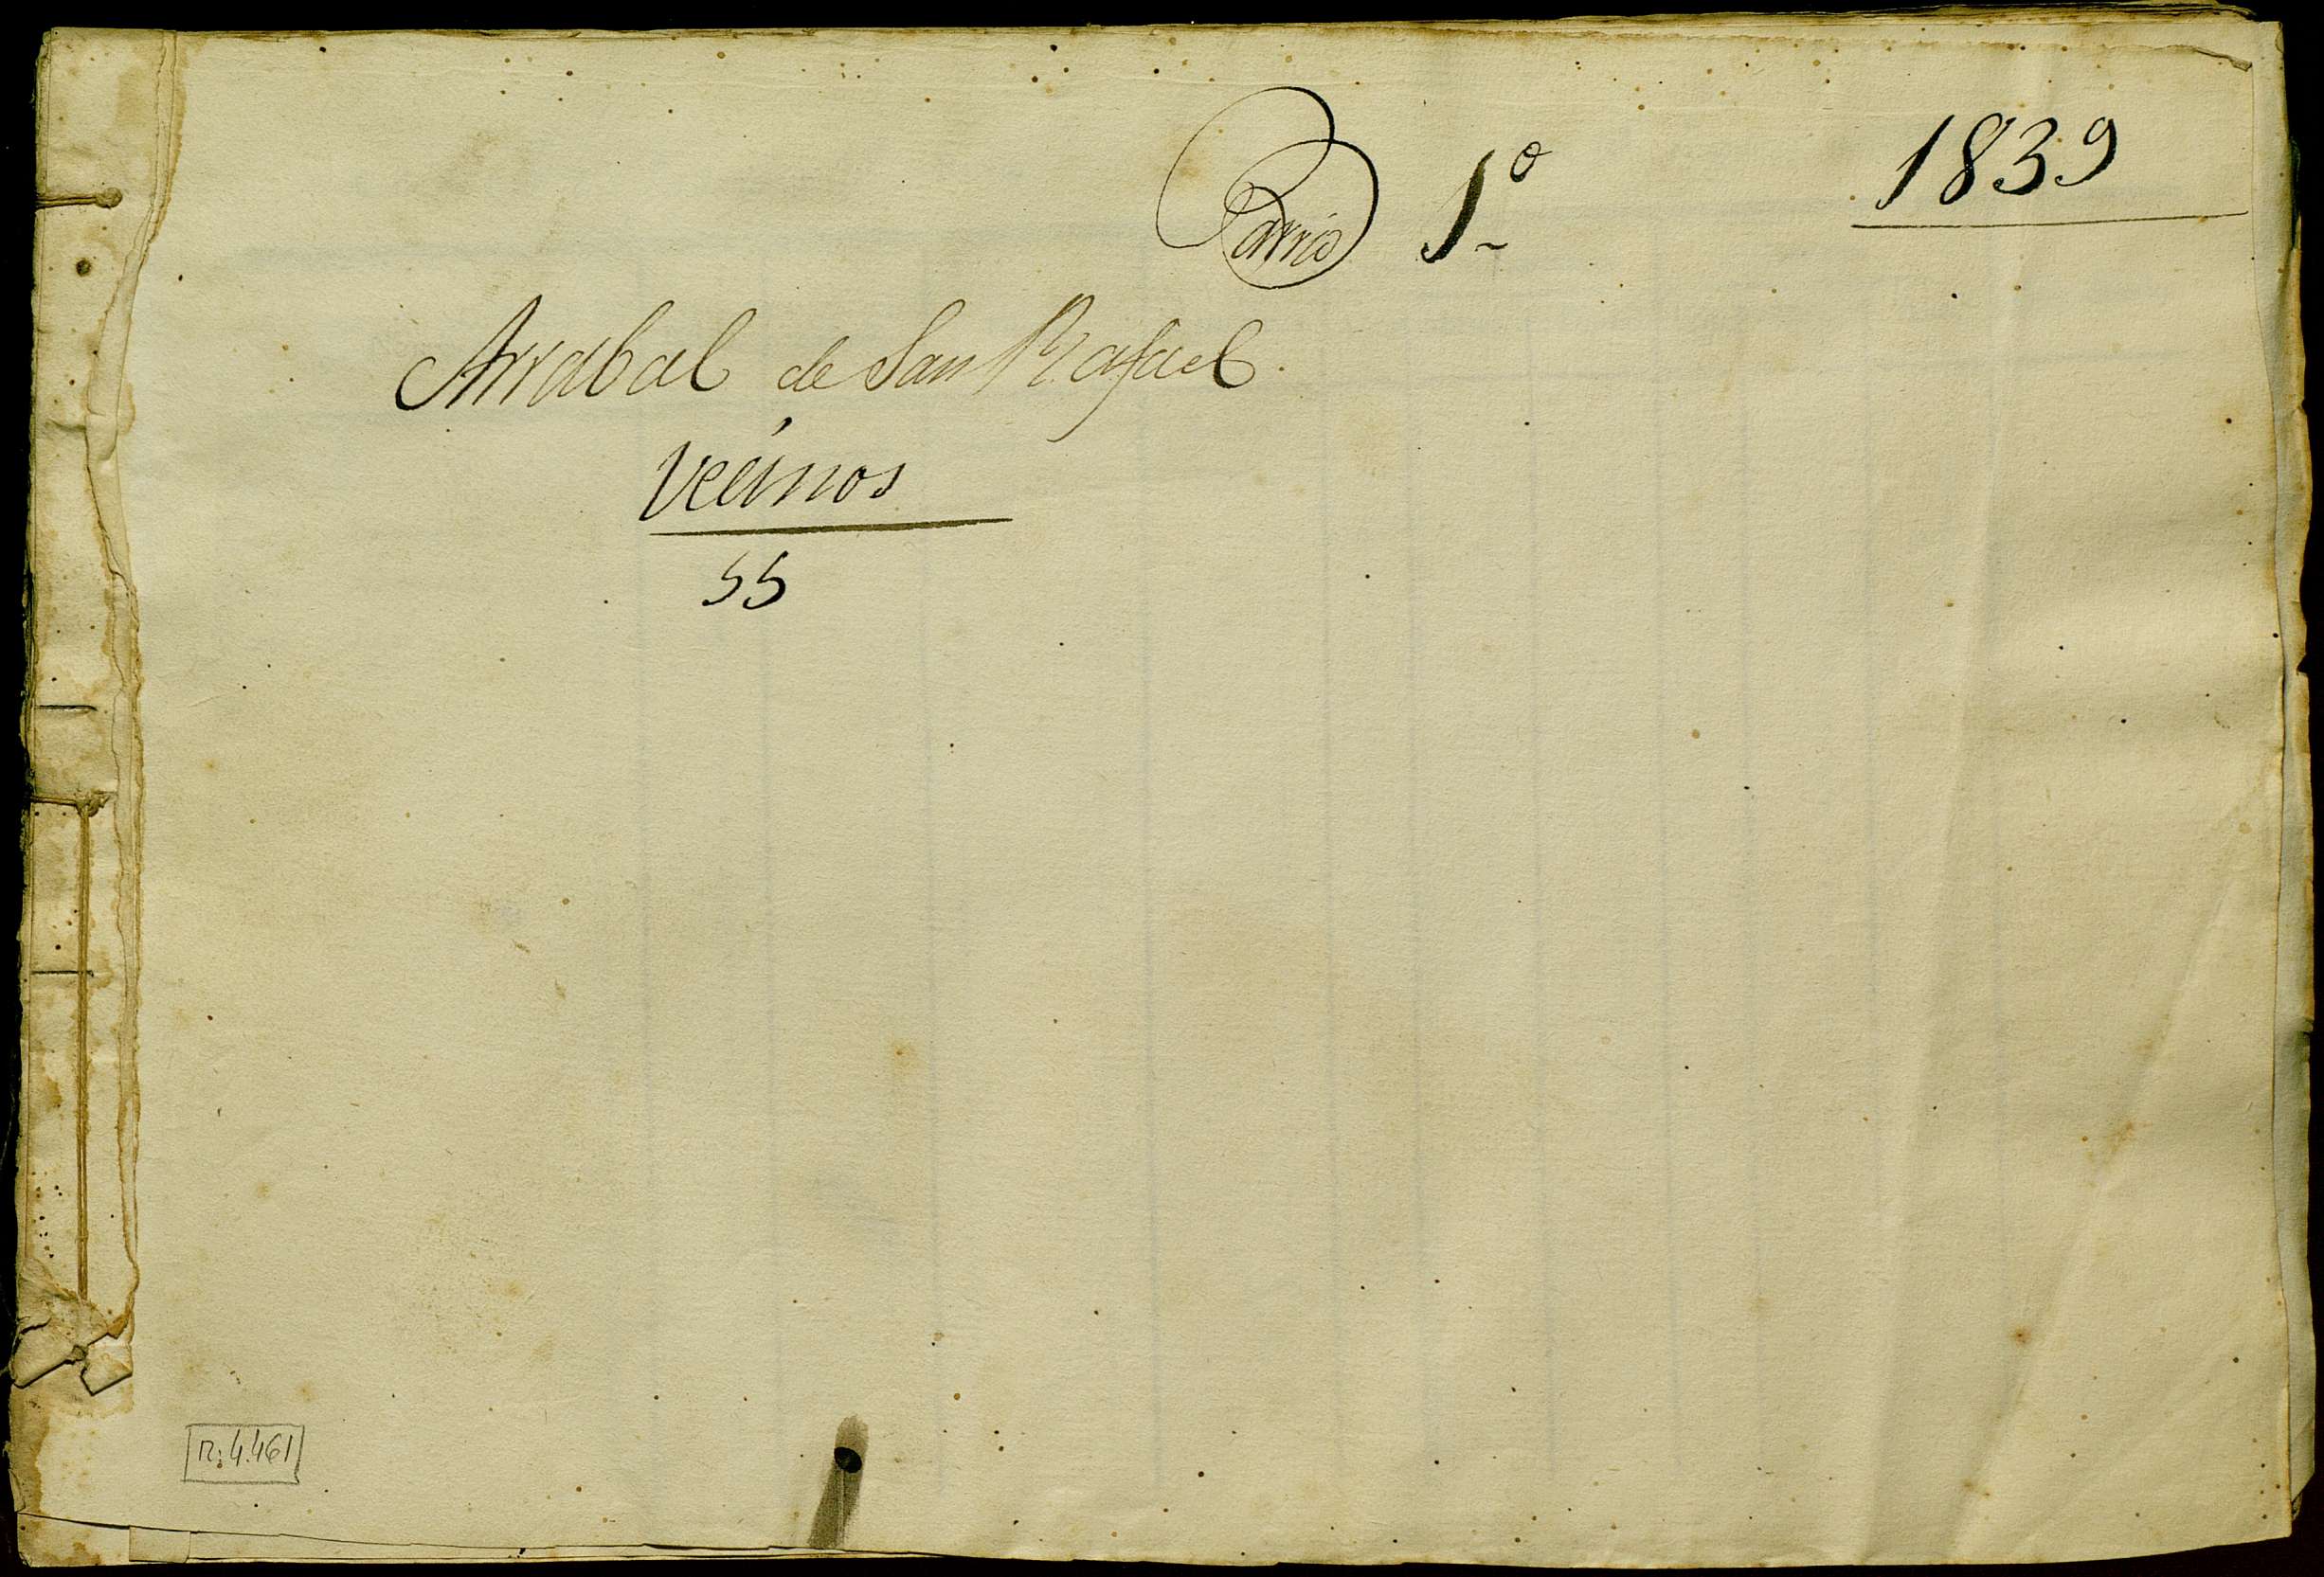 Barrio 1º 1839
Arrabal de San Rafael.
Vecinos
55
n: 4.461